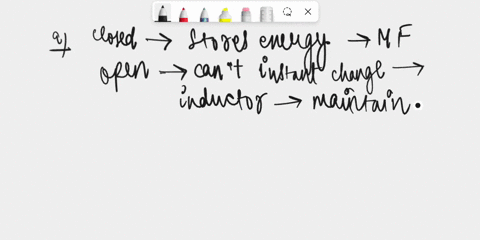 a) closed → stores energy → MF
open → can't instant change →
inductor → maintain.